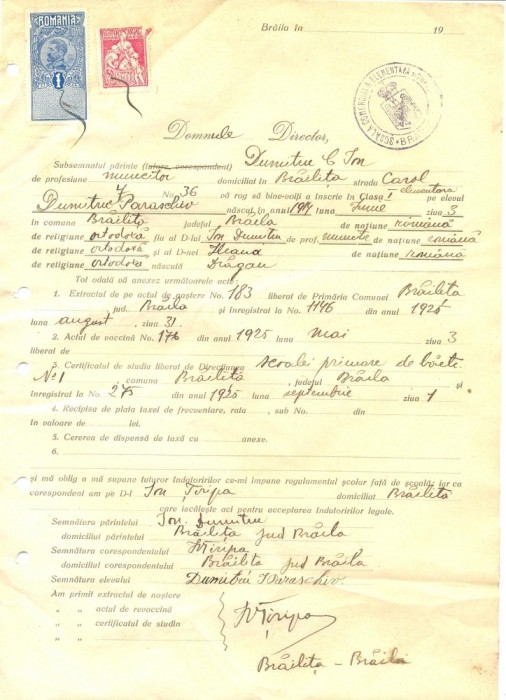 ROMANIA
1
Brăila în 19
ȘCOALA COMERCIALĂ ELEMENTARĂ BRĂILA
Domnule Director,
Subsemnatul părinte (tutore, corespondent) Dumitru C Ion
de profesiune muncitor domiciliat în Brăilița strada Carol
I No. 36 vă rog să bine-voiți a înscrie în Clasa I elementara pe elevul
Dumitru Paraschiv născut în anul luna Iunie ziua 3
în comuna Brăilița județul Brăila de națiune română
de religiune ortodoxă fiu al D-lui Ion Dumitru de prof. muncitor de națiune română
de religiune ortodoxă și al D-nei Ileana de națiune română
de religiune ortodoxă născută Drăgan
Tot odată vă anexez următoarele acte:
1. Extractul de pe actul de naștere No. 183 liberat de Primăria Comunei Brăilița
jud. Brăila și înregistrat la No. 1146 din anul 1925
luna august ziua 31.
2. Actul de vaccină No. 176 din anul 1925 luna Mai ziua 3
liberat de
3. Certificatul de studiu liberat de Direcțiunea școalei primare de băeți
No 1 comuna Brăilița județul Brăila și
înregistrat la No. 275 din anul 1925 luna septembrie ziua 1
4. Recipisa de plata taxei de frecuentare, rata , sub No. din
în valoare de lei.
5. Cererea de dispensă de taxă cu anexe.
6.
și mă oblig a mă supune tuturor îndatoririlor ce-mi impune regulamentul școlar față de școală; iar ca
corespondent am pe D-l Ion Țiripa domiciliat Brăilița
care iscălește aci pentru acceptarea îndatoririlor legale.
Semnătura părintelui Ion Dumitru
domiciliul părintelui Brăilița jud Brăila
Semnătura corespondentului Țiripa
domiciliul corespondentului Brăilița jud Brăila
Semnătura elevului Dumitru Paraschiv
Am primit extractul de naștere
„ „ actul de revaccină
„ „ certificatul de studiu
„ „
Țiripa
Brăilița - Brăila